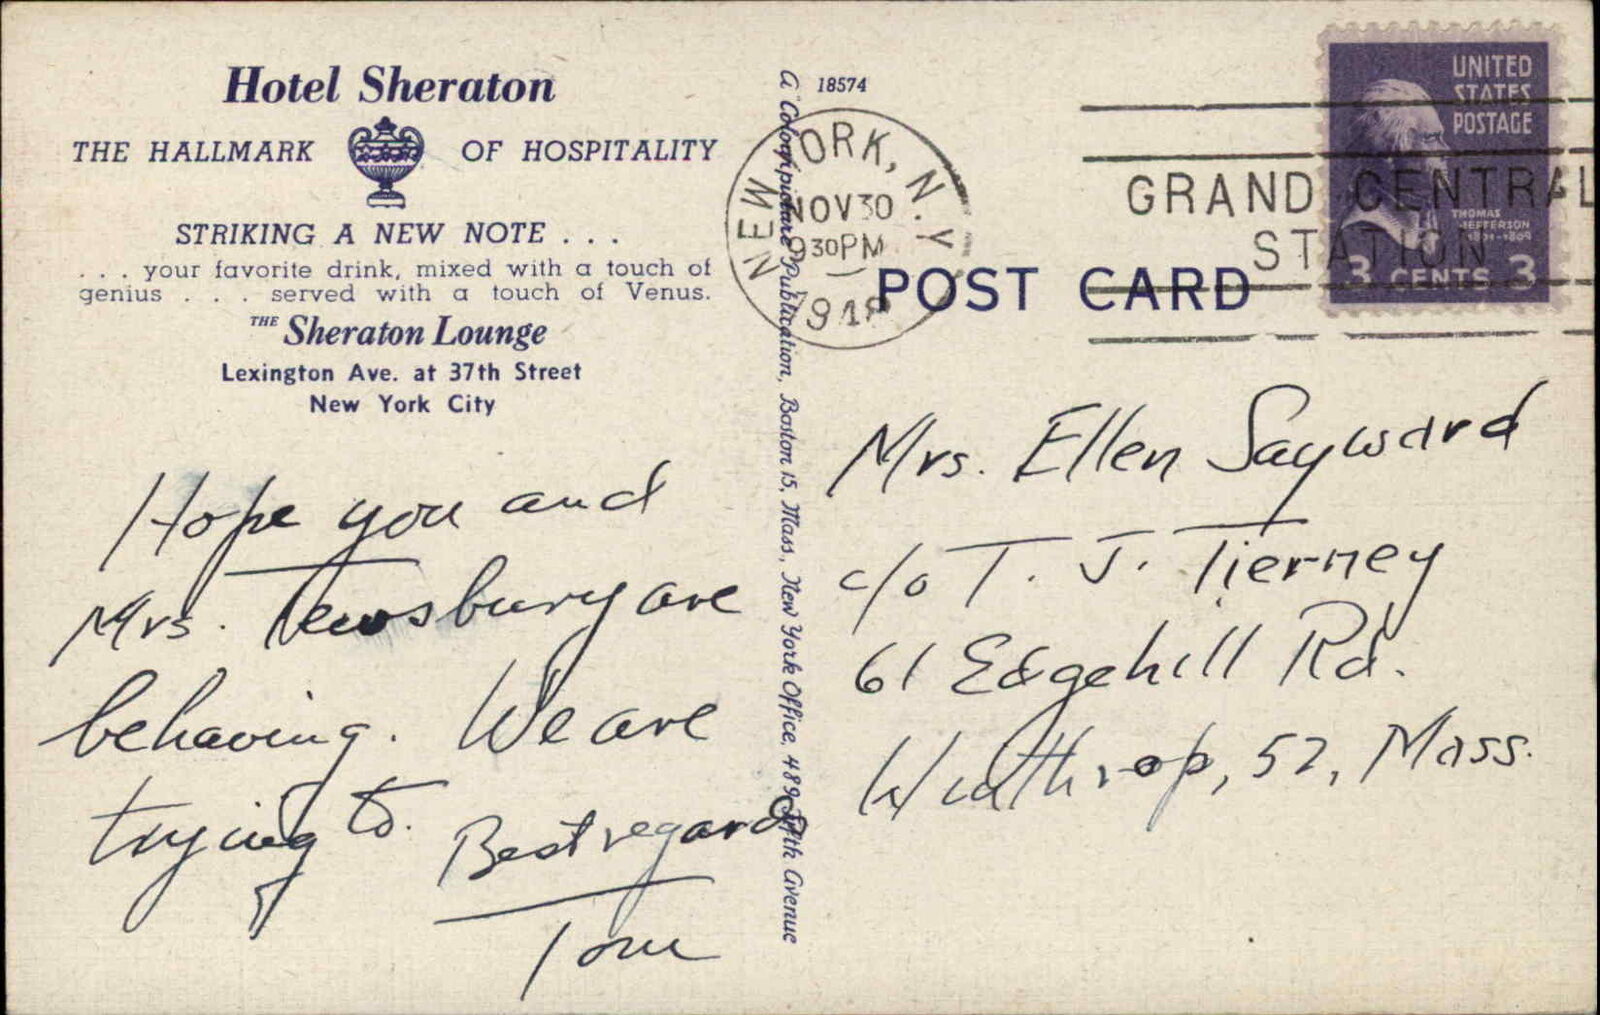 Hotel Sheraton
THE HALLMARK OF HOSPITALITY
STRIKING A NEW NOTE . . .
. . . your favorite drink, mixed with a touch of
genius . . . served with a touch of Venus.
THE Sheraton Lounge
Lexington Ave. at 37th Street
New York City
Hope you and
Mrs. Tewsbury are
behaving. We are
trying to. Best regards
Tom
A "Colorpicture" Publication, Boston 15, Mass., New York Office, 489 Fifth Avenue
18574
NEW YORK, N.Y.
NOV 30
930PM
1948
GRAND CENTRAL
STATION
UNITED
STATES
POSTAGE
THOMAS
JEFFERSON
1801-1809
3 CENTS 3
POST CARD
Mrs. Ellen Sayward
c/o T. J. Tierney
61 Edgehill Rd.
Winthrop, 52, Mass.